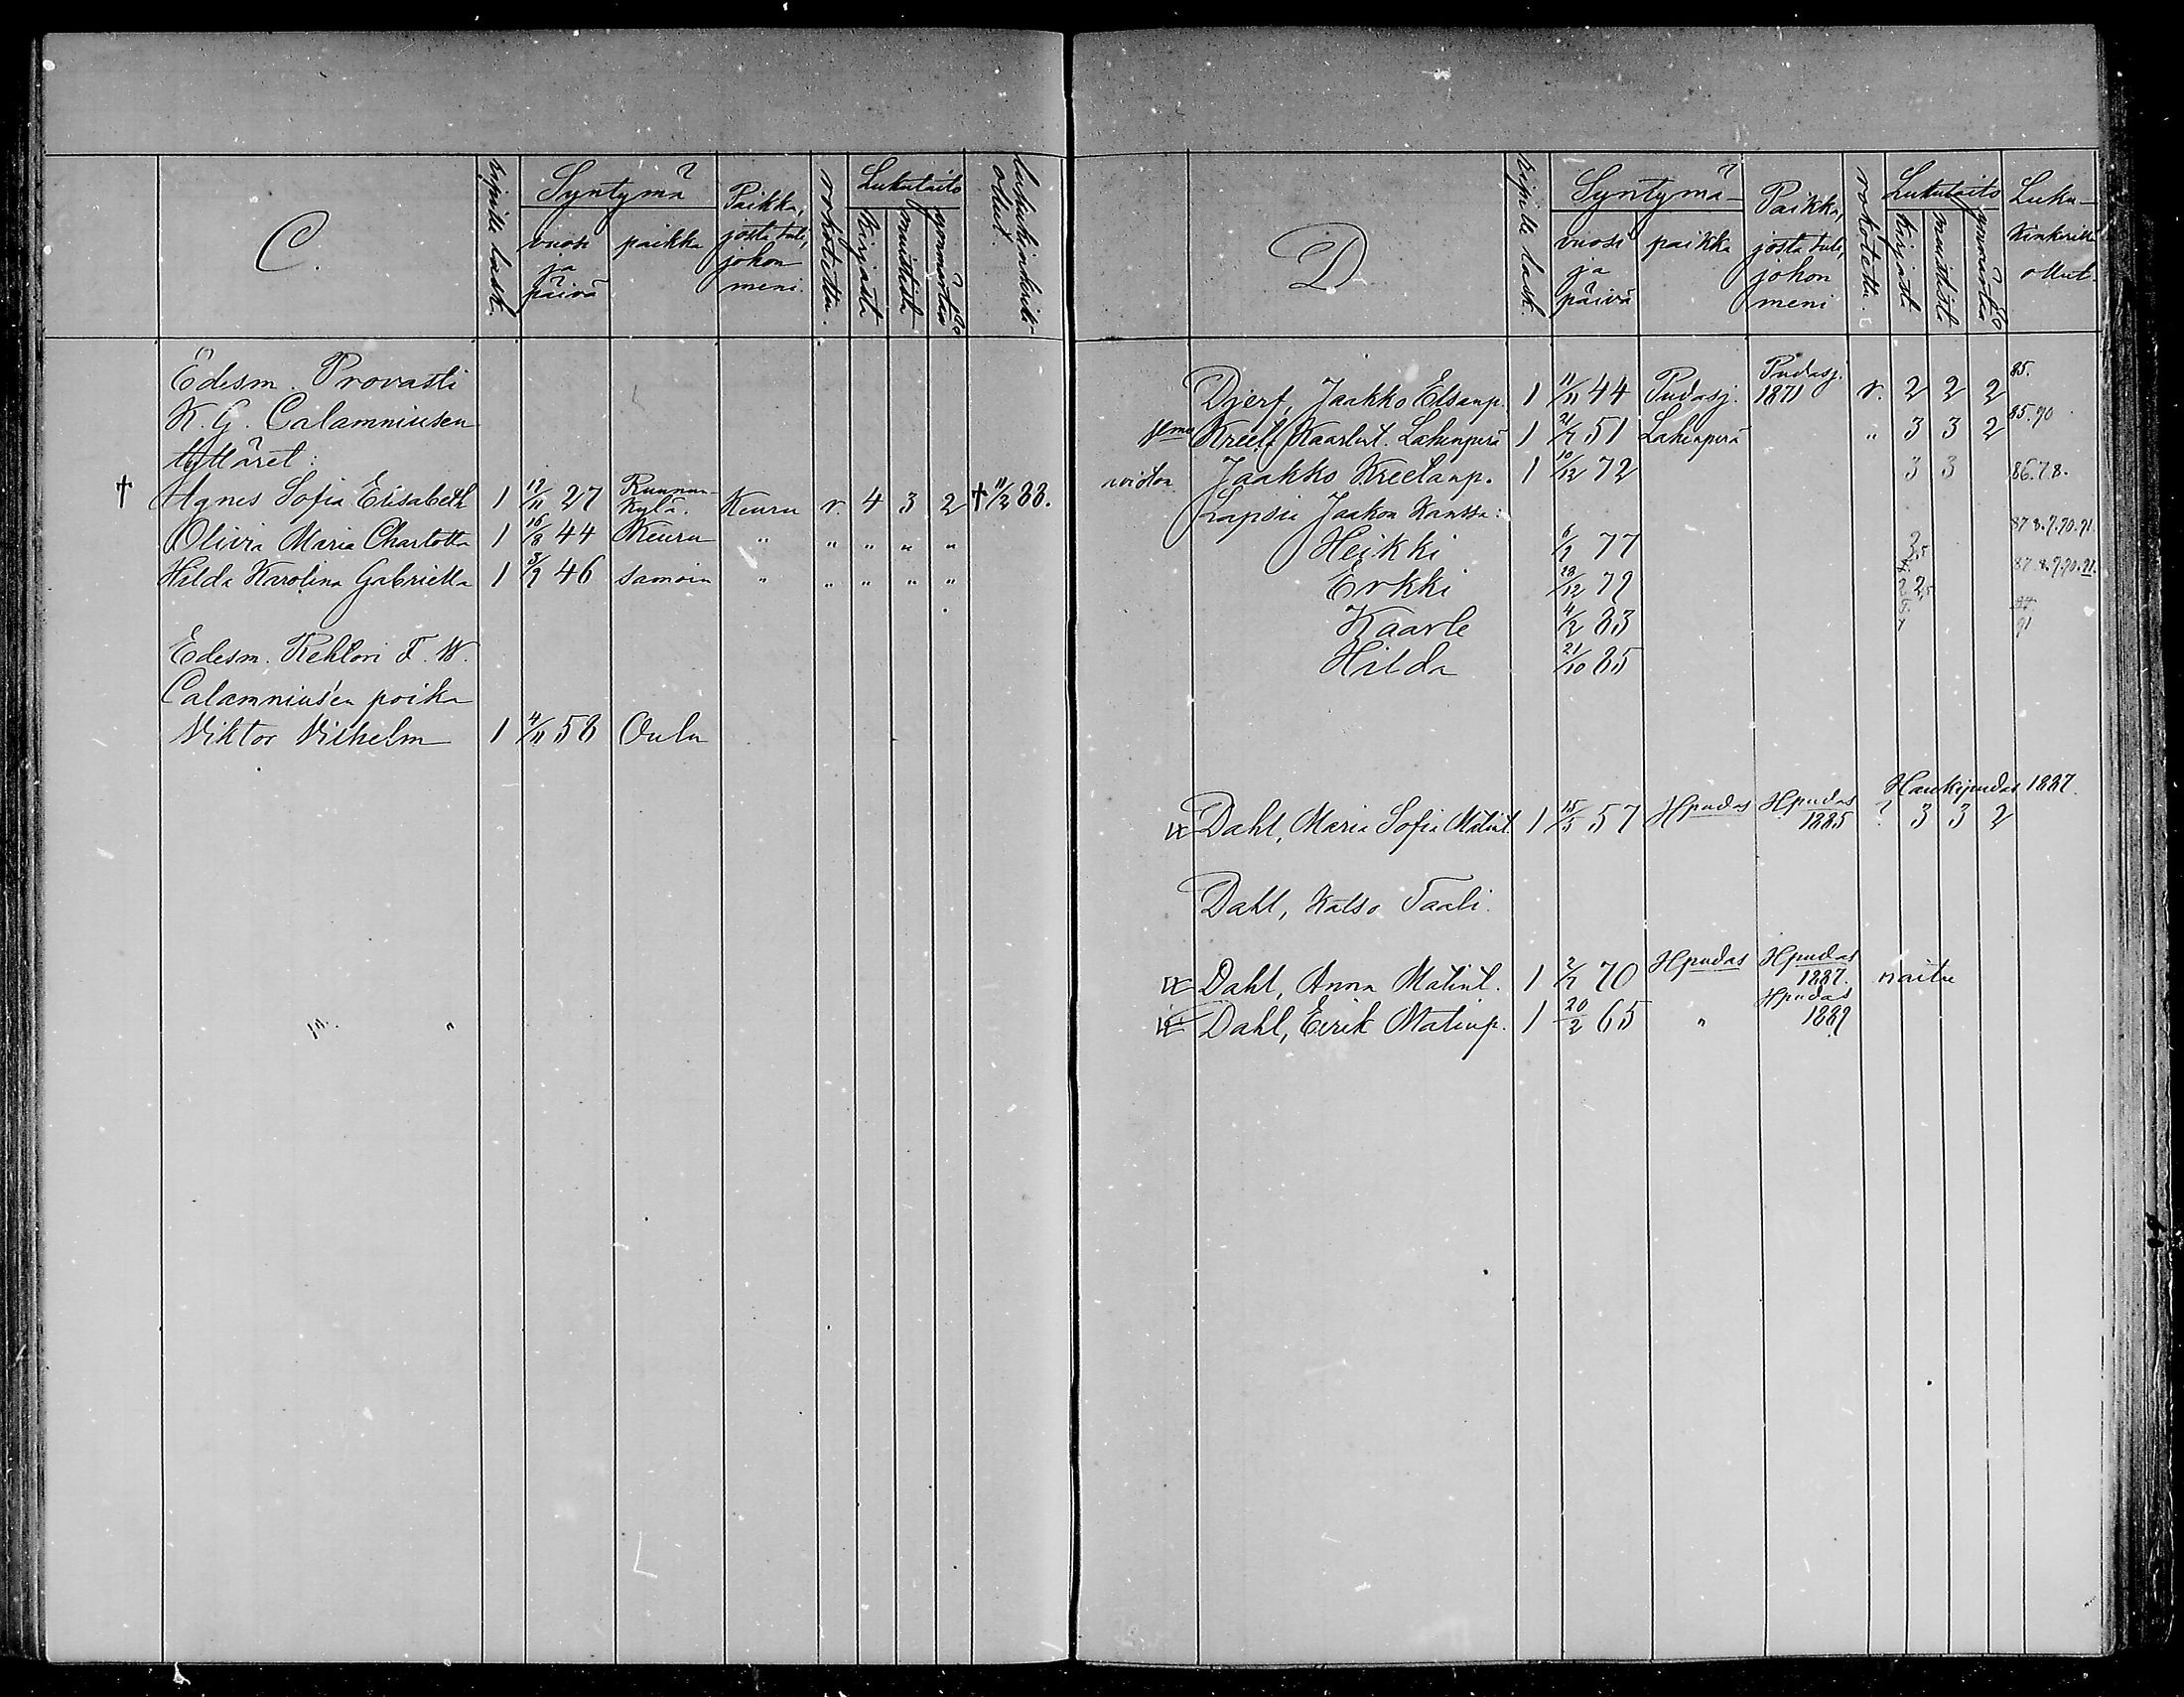 C.
ripille lask.
Syntymä
vuosi ja päivä
paikka
Paikka, josta tuli, johon meni.
rokotettu.
Lukutaito
kirjasta
muistista
ymmärtää
lukukinkerillä ollut.
Edesm. Provasti
K. G. Calamniusen
tyttäret:
† Agnes Sofia Elisabeth 1 12/11 27 Ruunun-kylä. Keuru r 4 3 2 † 11/2 88.
Olivia Maria Charlotta 1 16/8 44 Keuru " " " " "
Hilda Karolina Gabriella 1 3/9 46 samoin " " " " "
Edesm. Rehtori F. W.
Calamnius'en poika
Viktor Vilhelm 1 4/11 58 Oulu
D
ripille lask.
Syntymä
vuosi ja päivä
paikka
Paikka, josta tuli, johon meni
rokotettu.
Lukutaito
kirjasta
muistista
ymmärtää
Luku-kinkerillä ollut.
Djerf, Jaakko Elsanp. 1 11/11 44 Pudasj. Pudasj. 1871 r. 2 2 2 85.
Kreeta Kaarlint. Lahenperä 1 21/7 51 Lahenperä " 3 3 2 85.90
Jaakko Kreetanp. 1 10/12 72 3 3 86.7.8.
Lapsia Jaakon kanssa:
Heikki 6/9 77 87.8.9.90.91.
Erkki 28/12 79 87.8.9.90.91.
Kaarle 4/2 83
Hilda 21/10 85 91
Haukipudas 1887.
Dahl, Maria Sofia Matint. 1 15/5 57 Hpudas Hpudas 1885 ? 3 3 2
Dahl, katso Taali.
Dahl, Anna Matint. 1 2/7 70 Hpudas Hpudas 1887. naitu
Dahl, Eirik Matinp. 1 20/2 65 " Hpudas 1889